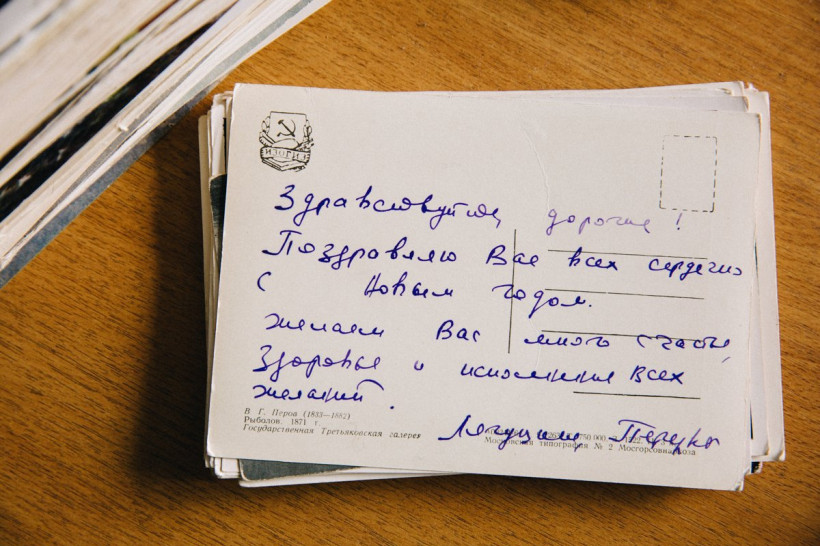 ИЗОГИЗ
Здравствуйте, дорогие!
Поздравляю Вас всех сердечно
с Новым годом.
Желаем Вас много счастье,
Здоровье и исполнения всех
желаний.
В. Г. Перов (1833—1882)
Рыболов. 1871 г.
Государственная Третьяковская галерея
750 000
Московская типография № 2 Мосгорсовнархоза